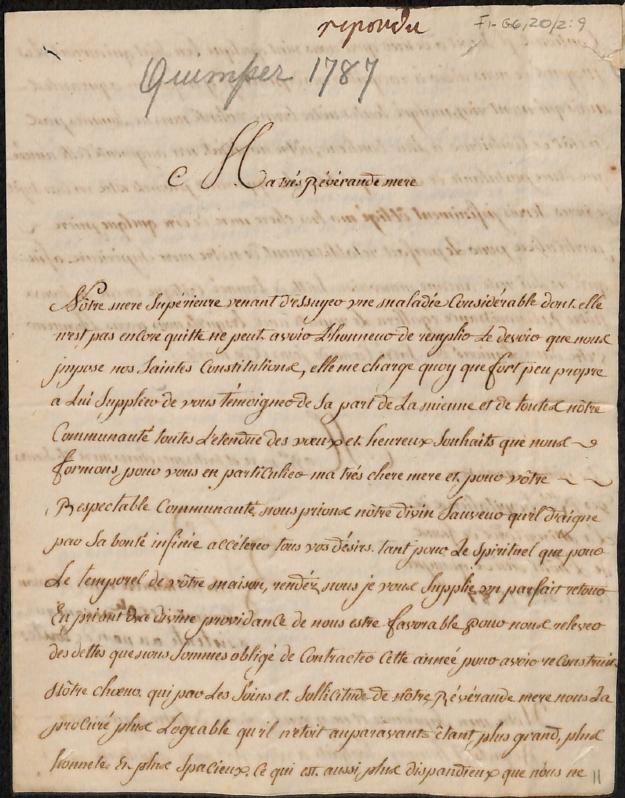 repondu
F1-G6,20/2:9
Quimper 1787
Ma trés Révérande mere
Nôtre mere Supérieure venant d'essuyer une maladie Considérable dont elle
n'est pas encore quitte ne peut avoir L'honneur de remplir Le devoir que nous
impose nos Saintes Constitutions, elle me charge quoy que fort peu propre
a Lui Supplier de vous témoigner de Sa part de La mienne et de toutes nôtre
Communauté toutes L'etendue des vœux et heureux Souhaits que nous
formons pour vous en particulier ma trés chere mere et pour vôtre
Respectable Communauté, nous prions nôtre divin Sauveur qu'il daigne
par Sa bonté infinie accélerer tous vos désirs. tant pour Le Spirituel que pour
Le temporel de vôtre maison, rendéz nous je vous Supplie un parfait retour
En priant La divine providance de nous estre favorable pour nous relever
des dettes que nous Sommes obligé de Contracter Cette année pour avoir reconstruit
Nôtre chœur, qui par Les Soins et Sollicitude de nôtre Révérande mere nous La
procuré plus Logeable qu'il n'etoit auparavant étant plus grand, plus
honnete Et plus Spacieux, Ce qui est aussi plus dispandieux que nous ne
11